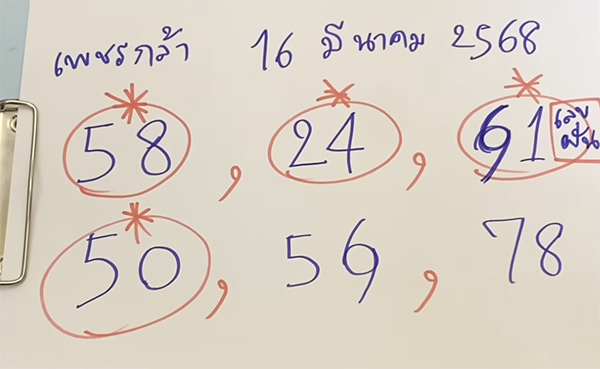 เพชรกล้า 16 มีนาคม 2568
58 , 24 , 61 เลขฝัน
50 , 56 , 78